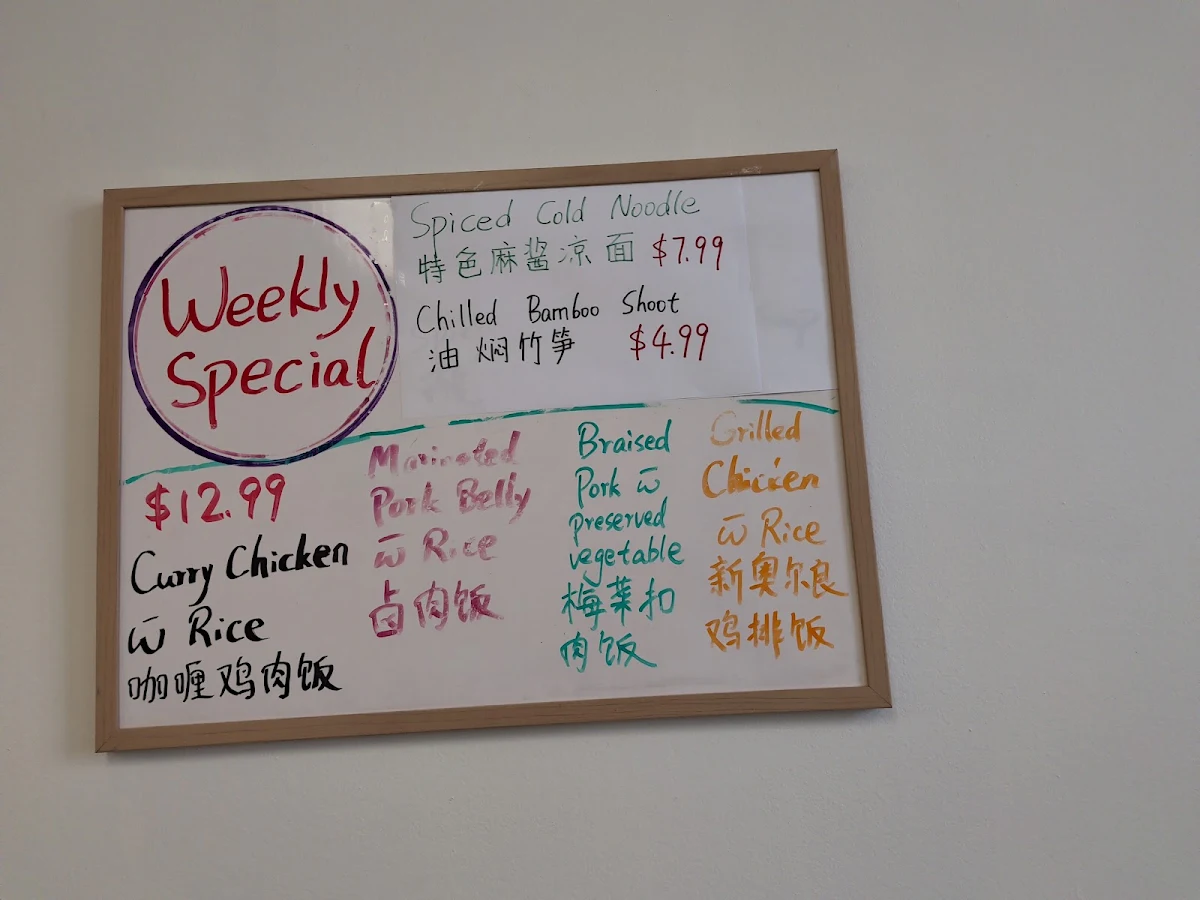 Weekly
Special
Spiced Cold Noodle
特色麻酱凉面 $7.99
Chilled Bamboo Shoot
油焖竹笋 $4.99
$12.99
Curry Chicken
w̅ Rice
咖喱鸡肉饭
Marinated
Pork Belly
w̅ Rice
卤肉饭
Braised
Pork w̅
preserved
vegetable
梅菜扣
肉饭
Grilled
Chicken
w̅ Rice
新奥尔良
鸡排饭